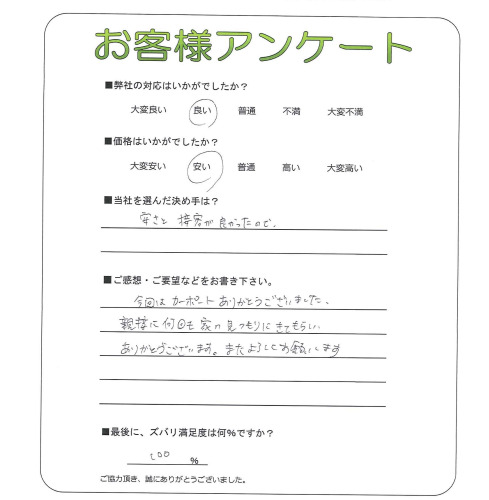 お客様アンケート
■弊社の対応はいかがでしたか？
大変良い 良い 普通 不満 大変不満
■価格はいかがでしたか？
大変安い 安い 普通 高い 大変高い
■当社を選んだ決め手は？
安さと 接客が良かったので、
■ご感想・ご要望などをお書き下さい。
今回は カーポート ありがとうございました、
親接に 何回も 家の見つもりに きてもらい
ありがとうございます。またよろしくお願いします
■最後に、ズバリ満足度は何％ですか？
200 ％
ご協力頂き、誠にありがとうございました。